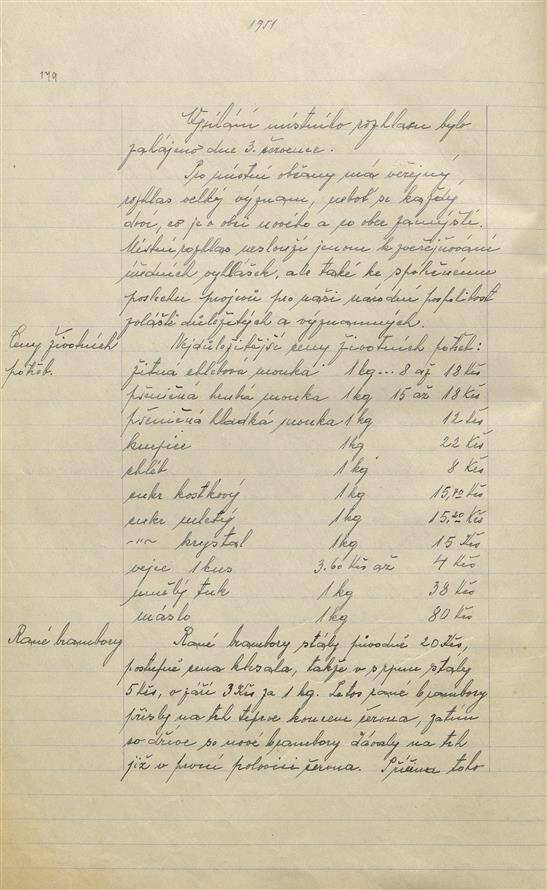 1951
179
Vysílání místního rozhlasu bylo
zahájeno dne 3. července.
Pro místní občany má veřejný
rozhlas velký význam, neboť se každý
doví, co je v obci nového a co obec zamýšlí.
Místní rozhlas neslouží jenom k zveřejňování
úředních vyhlášek, ale také ke společnému
poslechu projevů pro naši národní pospolitost
zvláště důležitých a významných.
Ceny životních
potřeb.
Nejdůležitější ceny životních potřeb:
žitná chlebová mouka 1 kg ... 8 až 18 Kčs
pšeničná hrubá mouka 1 kg 15 až 18 Kčs
pšeničná hladká mouka 1 kg 12 Kčs
krupice 1 kg 22 Kčs
chléb 1 kg 8 Kčs
cukr kostkový 1 kg 15,40 Kčs
cukr mletý 1 kg 15,20 Kčs
-"- krystal 1 kg 15 Kčs
vejce 1 kus 3.60 Kčs až 4 Kčs
umělý tuk 1 kg 38 Kčs
máslo 1 kg 80 Kčs
Rané brambory
Rané brambory stály původně 20 Kčs,
postupně cena klesala, takže v srpnu stály
5 Kčs, v září 3 Kčs za 1 kg. Letos rané brambory
přišly na trh teprve koncem června, zatím
co dříve se nové brambory dávaly na trh
již v první polovici června. Příčina toho